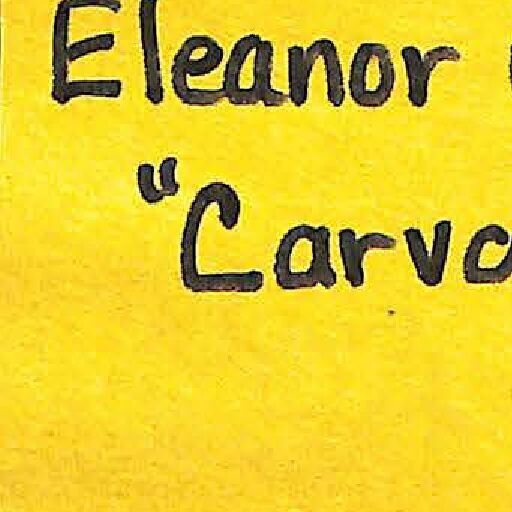 Eleanor
"Carv